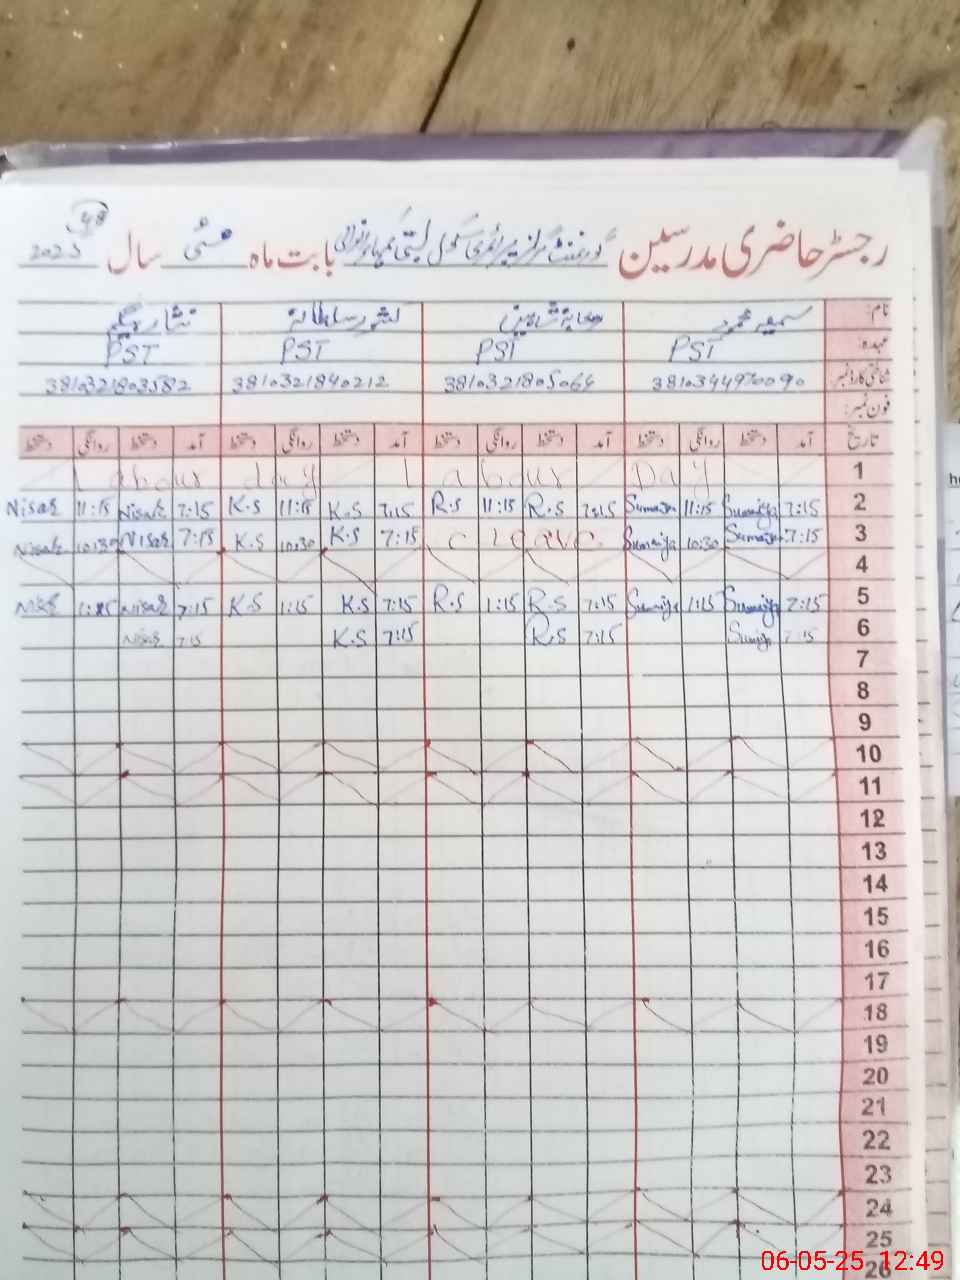 48
رجسٹر حاضری مدرسین گورنمنٹ گرلز پرائمری سکول بستی بابت ماہ مئی سال 2025
نام: سمیعہ محمود شاہین کشور سلطانہ نثار بیگم
عہدہ: PST PST PST PST
شناختی کارڈ نمبر 3810344970090 3810321805064 3810321840212 3810321803582
فون نمبر:
تاریخ آمد دستخط روانگی دستخط آمد دستخط روانگی دستخط آمد دستخط روانگی دستخط آمد دستخط روانگی دستخط
Labour day Labour Day 1
Nisar 11:15 Nisar 7:15 K.S 11:15 K.S 7:15 R.S 11:15 R.S 7:15 Sumaiya 11:15 Sumaiya 7:15 2
Nisar 10:30 Nisar 7:15 K.S 10:30 K.S 7:15 C leave Sumaiya 10:30 Sumaiya 7:15 3
4
Nisar 1:15 Nisar 7:15 K.S 1:15 K.S 7:15 R.S 1:15 R.S 7:15 Sumaiya 1:15 Sumaiya 7:15 5
Nisar 7:15 K.S 7:15 R.S 7:15 Sumiya 7:15 6
7
8
9
10
11
12
13
14
15
16
17
18
19
20
21
22
23
24
25
26
06-05-25 12:49